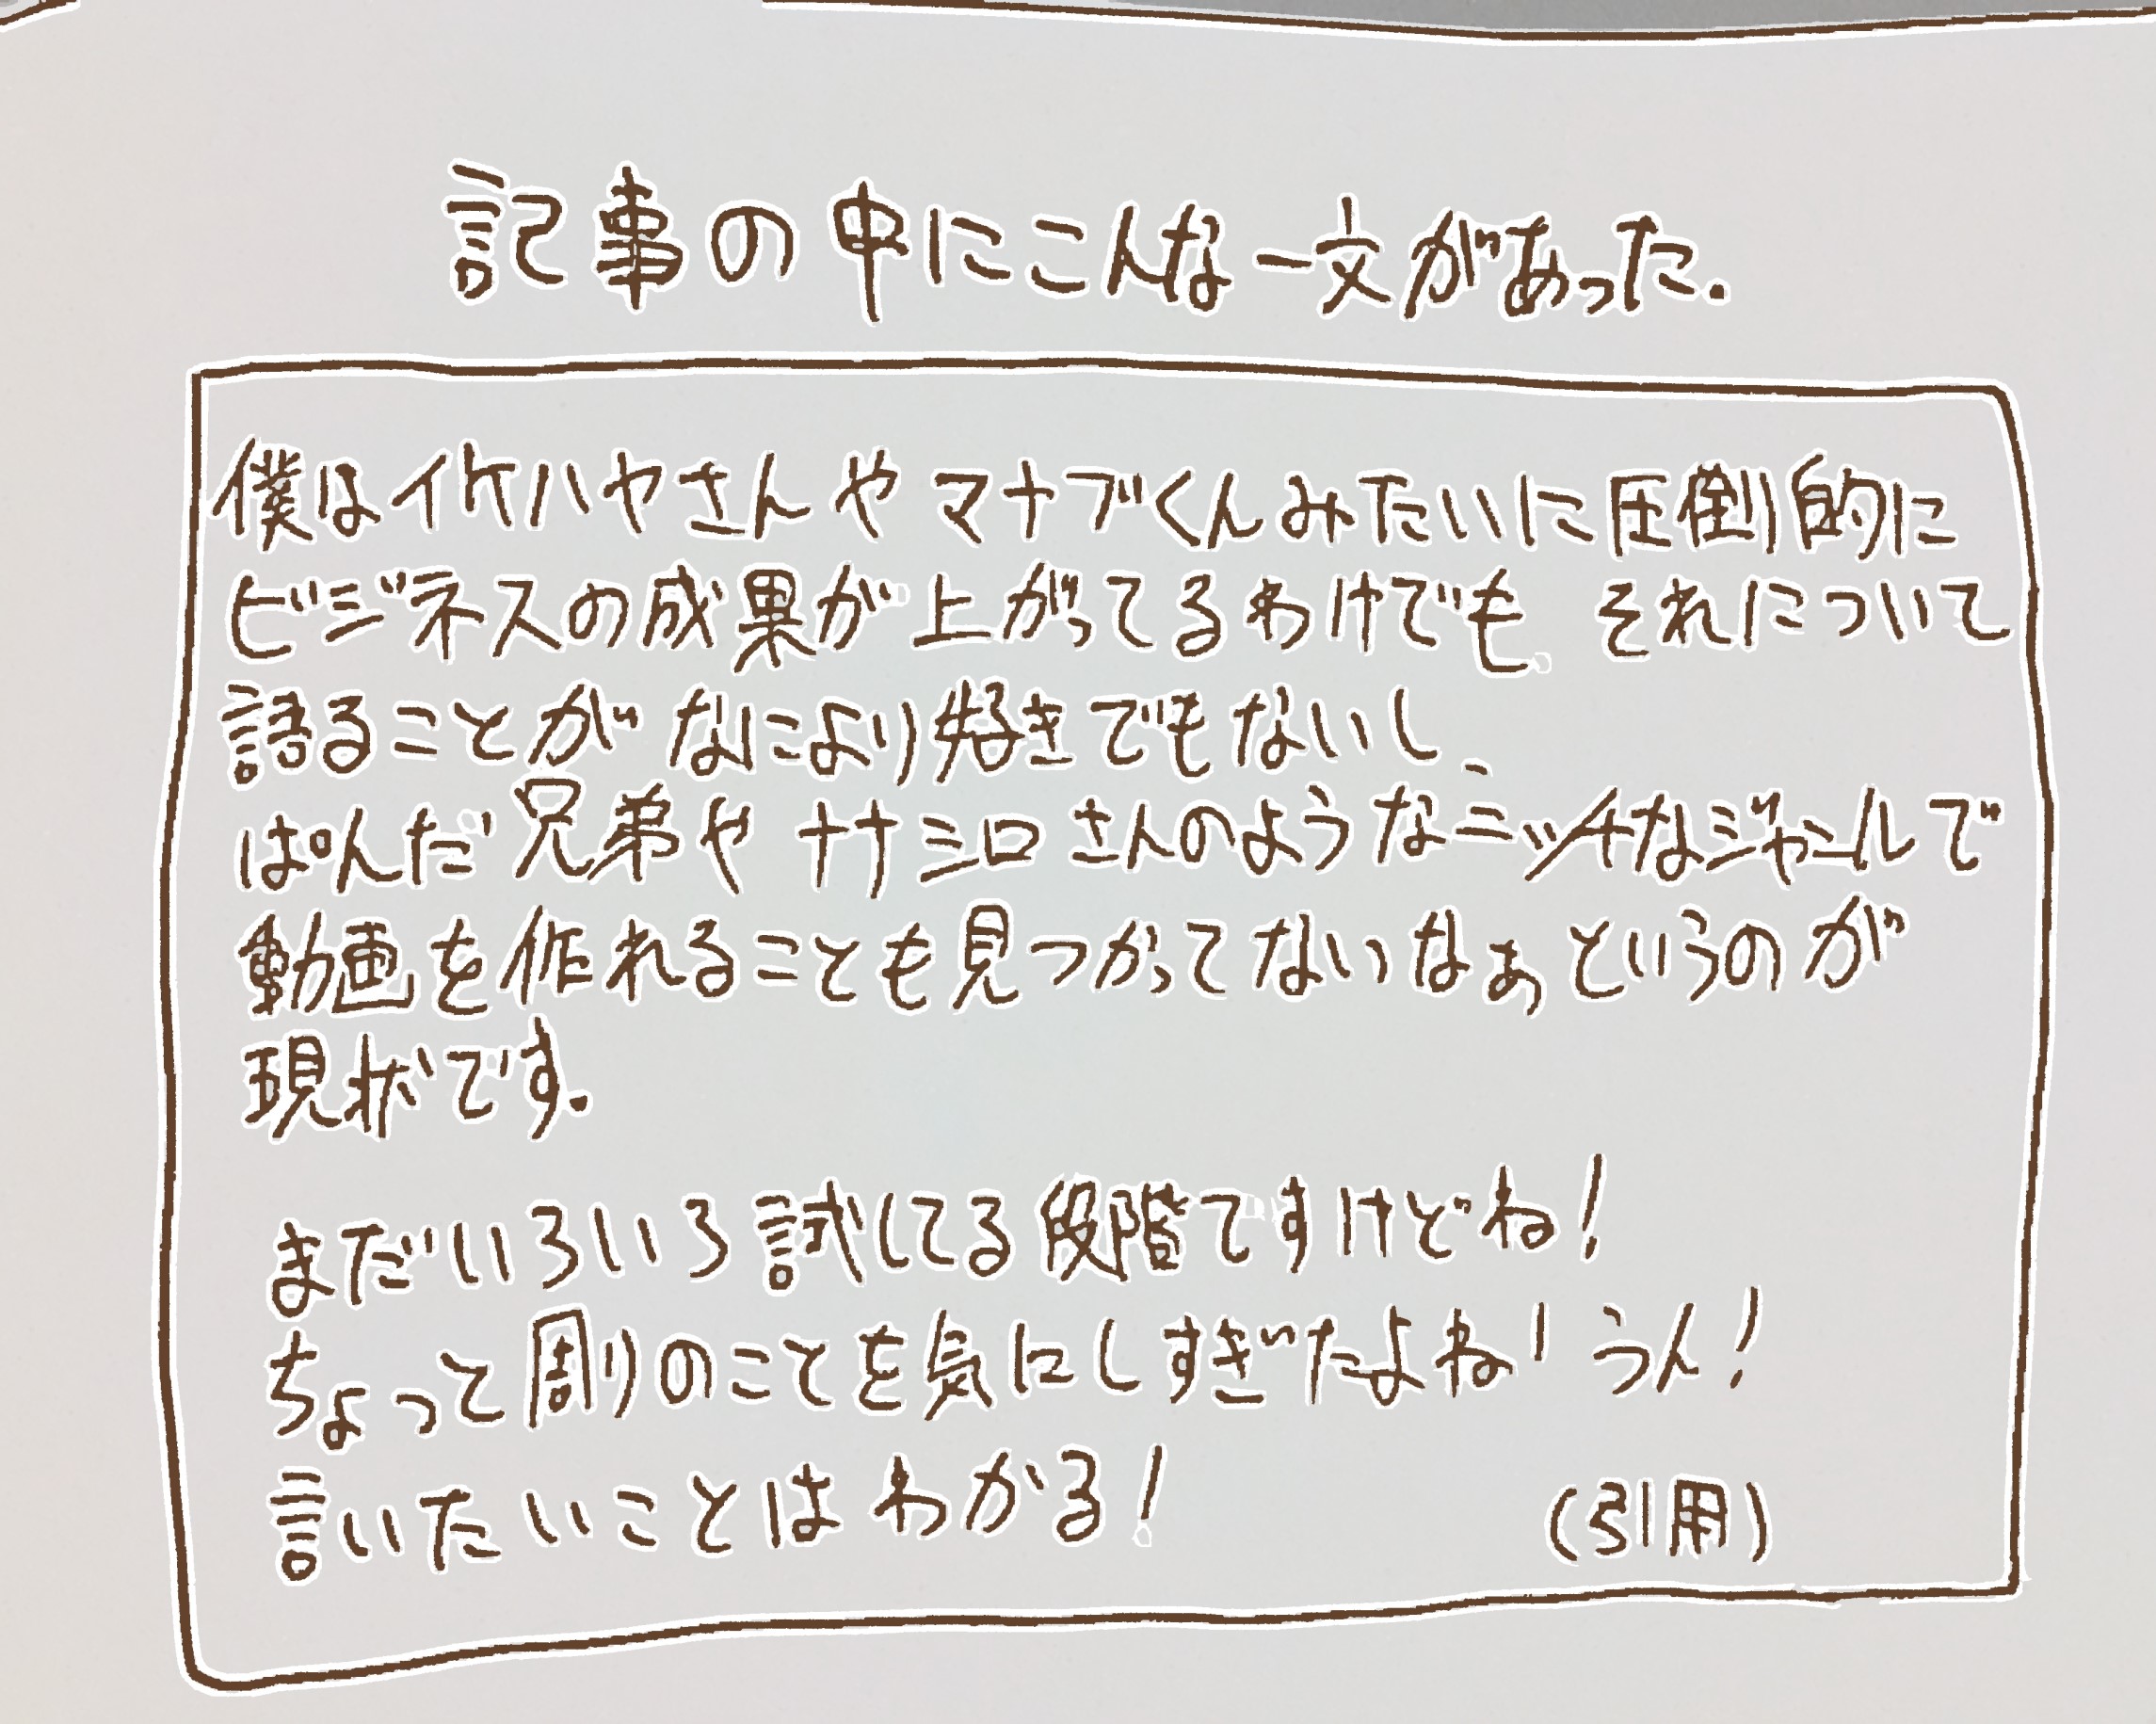 記事の中にこんな一文があった.
僕はイケハヤさんやマナブくんみたいに圧倒的に
ビジネスの成果が上がってるわけでも、それについて
語ることがなにより好きでもないし、
ぱんだ兄弟やナナシロさんのようなニッチなジャンルで
動画を作れることも見つかってないなぁというのが
現状です.
まだいろいろ試してる段階ですけどね!
ちょっと周りのことを気にしすぎたよね!うん!
言いたいことはわかる!
(引用)